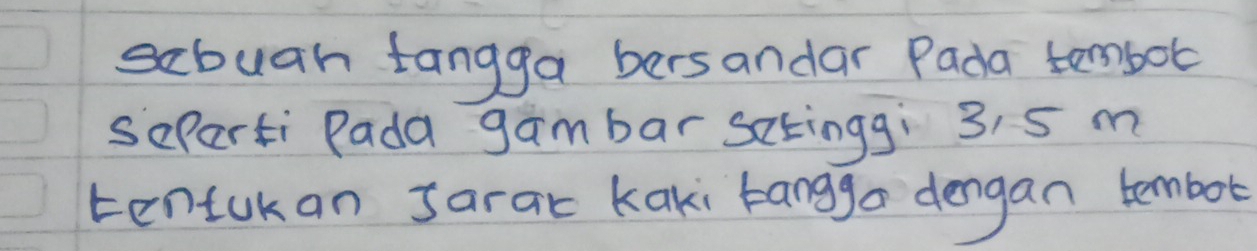 sebuah tangga bersandar Pada tembok
seperti Pada gambar setinggi 3,5 m
tentukan Jarak kaki tangga dengan tembok